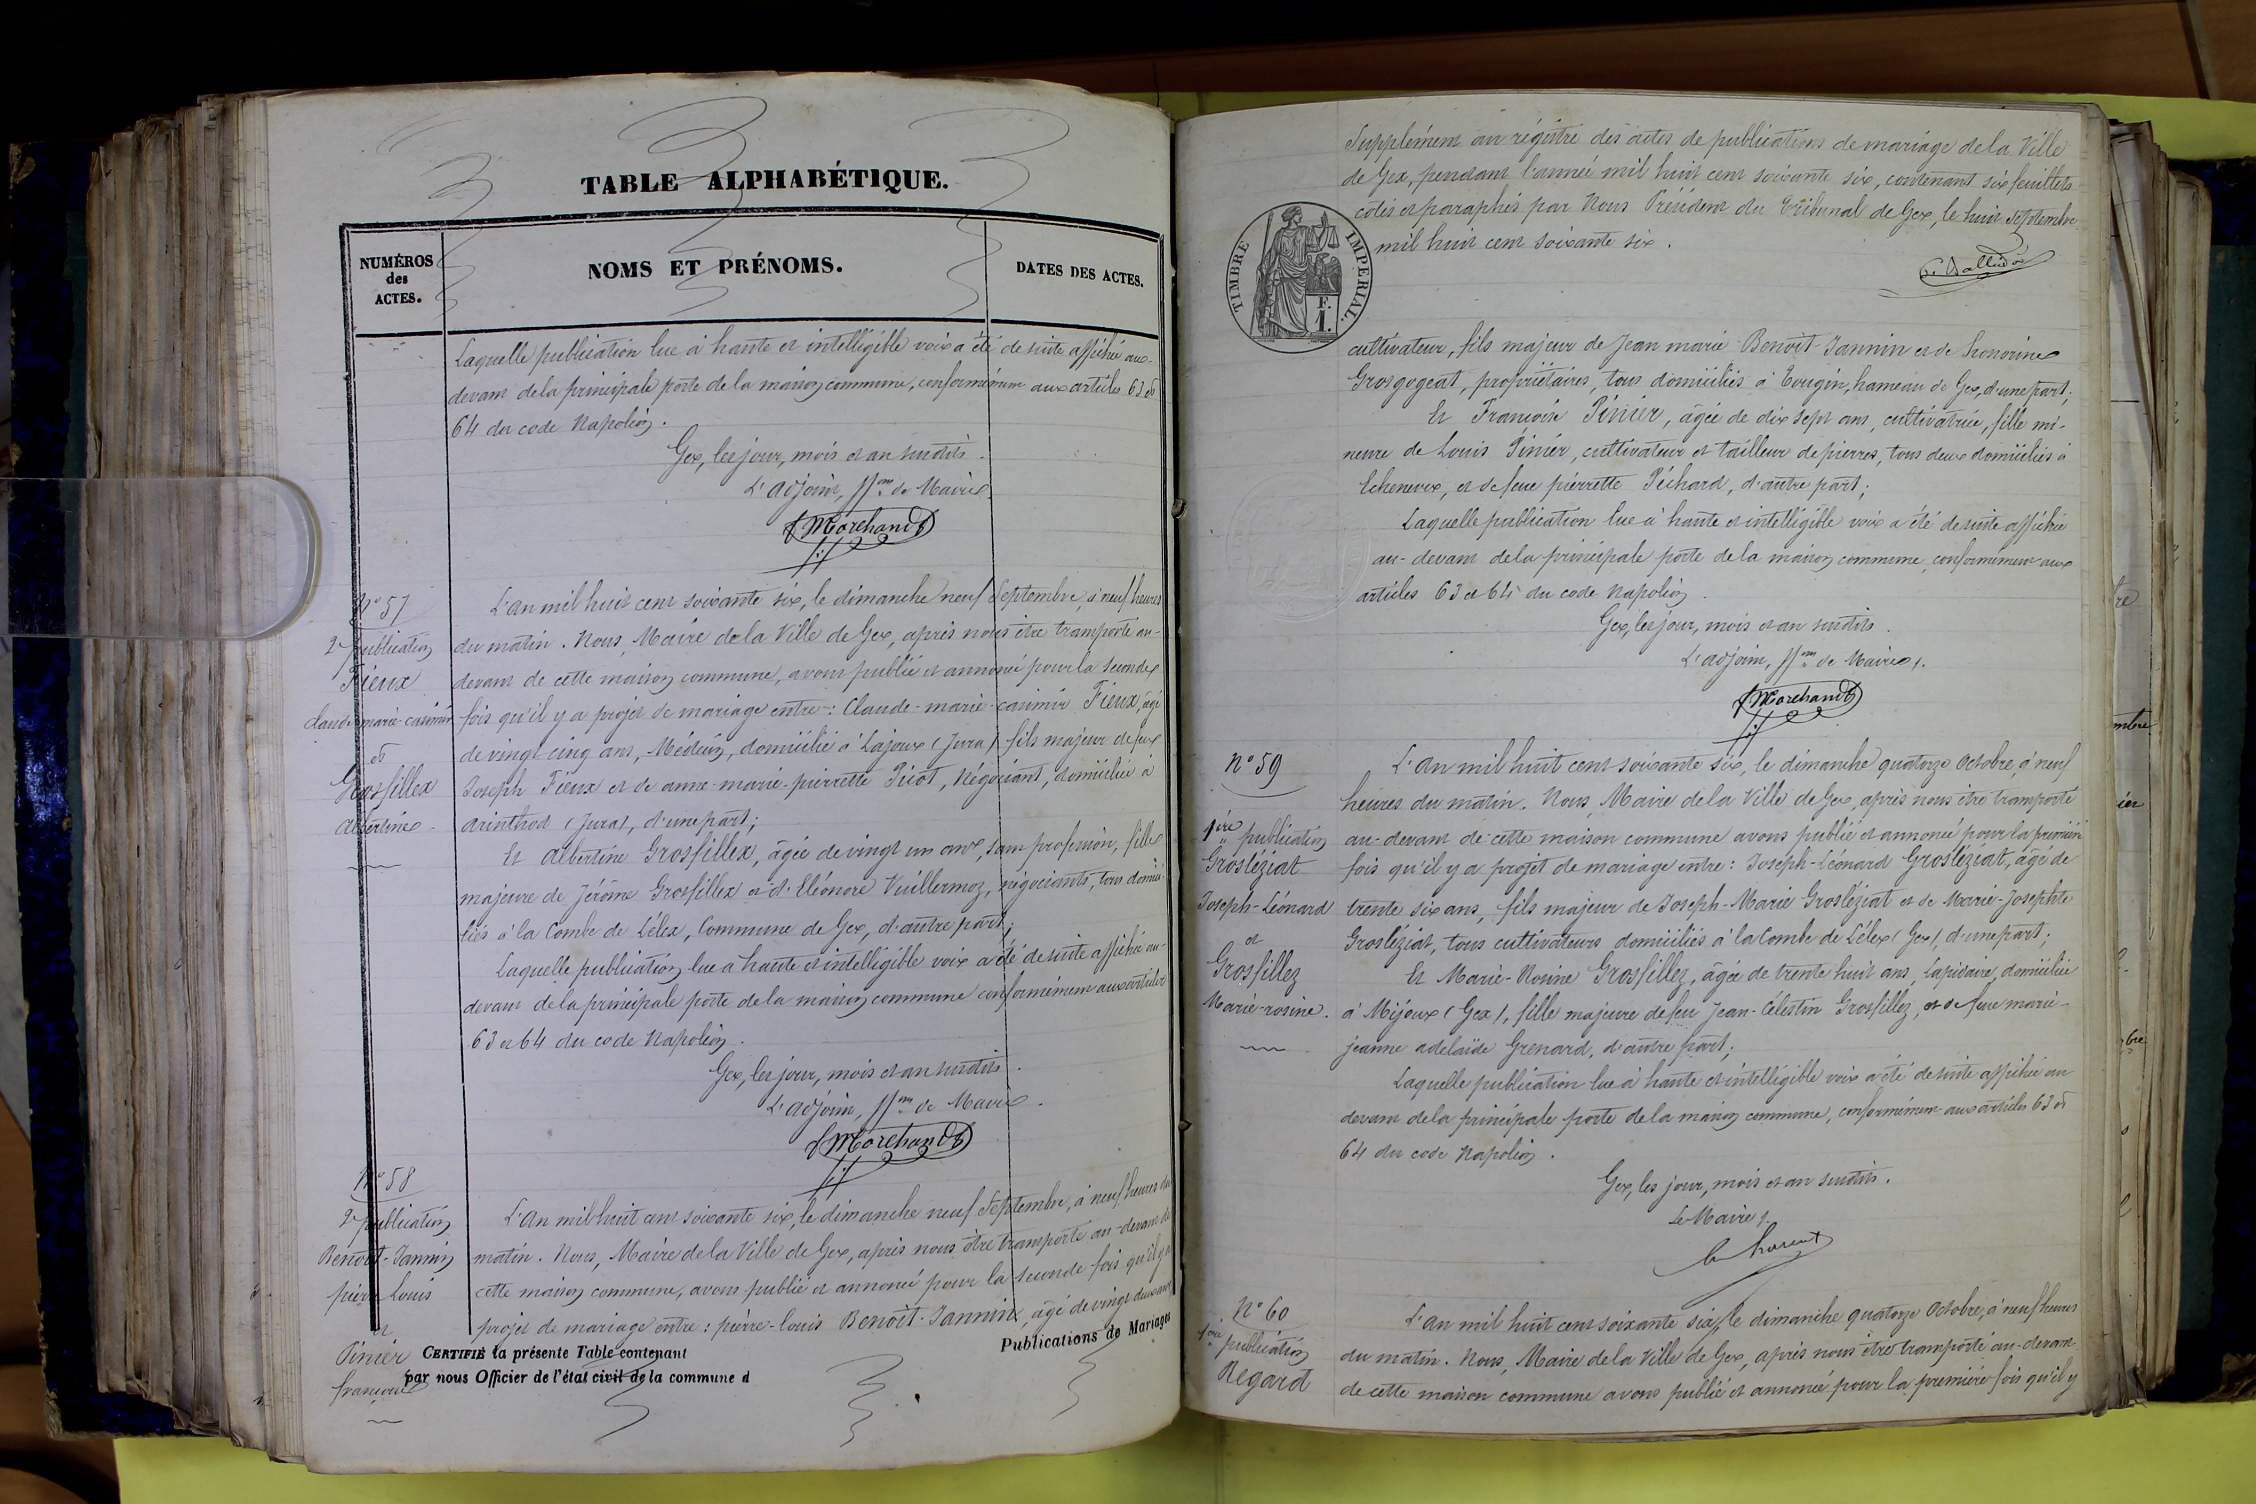 TABLE ALPHABÉTIQUE.
NUMÉROS
des
ACTES.
NOMS ET PRÉNOMS.
DATES DES ACTES.
Laquelle publication lue à haute et intelligible voix a été de suite affichée au-
devant de la principale porte de la maison commune, conformément aux articles 63 et
64 du code Napoléon.
Gex, les jour, mois et an susdits.
L'adjoint, ffon de Maire
Morchand
N° 57
2e publication
Fieux
claude-marie-casimir
et
Grosfillex
Albertine.
L'an mil huit cent soixante six, le dimanche neuf Septembre, à neuf heures
du matin. Nous, Maire de la Ville de Gex, après nous être transporté au-
devant de cette maison commune, avons publié et annoncé pour la seconde
fois qu'il y a projet de mariage entre: Claude-marie-casimir Fieux, âgé
de vingt cinq ans, Médecin, domicilié à Lajoux (Jura) fils majeur de feu
Joseph Fieux et de anne-marie-pierrette Picot, Négociant, domiciliée à
Arinthod (Jura), d'une part;
Et Albertine Grosfillex, âgée de vingt un ans, sans profession, fille
majeure de Jérôme Grosfillex et d'Eléonore Vuillermoz, négociants, tous domici-
liés à la Combe de Lélex, Commune de Gex, d'autre part;
Laquelle publication lue à haute et intelligible voix a été de suite affichée au-
devant de la principale porte de la maison commune conformément aux articles
63 et 64 du code Napoléon.
Gex, les jour, mois et an susdits.
L'adjoint, ffon de Maire.
Morchand
N° 58
2e publication
Benoit-Jannin
pierre Louis
et
Pinier
françoise
L'an mil huit cent soixante six, le dimanche neuf Septembre, à neuf heures du
matin. Nous, Maire de la Ville de Gex, après nous être transporté au-devant de
cette maison commune, avons publié et annoncé pour la seconde fois qu'il y a
projet de mariage entre: pierre-louis Benoit-Jannin, âgé de vingt deux ans
CERTIFIÉ la présente Table contenant
par nous Officier de l'état civil de la commune d
Publications de Mariages
Supplément au régistre des actes de publications de mariage de la Ville
de Gex, pendant l'année mil huit cent soixante six, contenant six feuillets
cotés et paraphés par Nous Président du Tribunal de Gex, le huit Septembre
mil huit cent soixante six.
TIMBRE IMPERIAL.
F.
1.
cultivateur, fils majeur de Jean marie Benoit-Jannin et de honorine
Grosgogeat, propriétaires, tous domiciliés à Tougin, hameau de Gex, d'une part;
Et Françoise Pinier, âgée de dix sept ans, cultivatrice, fille mi-
neure de Louis Pinier, cultivateur et tailleur de pierres, tous deux domiciliés à
Echenevex, et de feue pierrette Péchard, d'autre part;
Laquelle publication lue à haute et intelligible voix a été de suite affichée
au-devant de la principale porte de la maison commune, conformément aux
articles 63 et 64 du code Napoléon.
Gex, les jour, mois et an susdits.
L'adjoint, ffon de Maire.
Morchand
N° 59
1ère publication
Grosléziat
Joseph-Léonard
et
Grosfillez
Marie-rosine.
L'an mil huit cent soixante six, le dimanche quatorze Octobre, à neuf
heures du matin. Nous, Maire de la Ville de Gex, après nous être transporté
au-devant de cette maison commune avons publié et annoncé pour la première
fois qu'il y a projet de mariage entre: Joseph-Léonard Grosléziat, âgé de
trente six ans, fils majeur de Joseph-Marie Grosléziat et de Marie-Josephte
Grosléziat, tous cultivateurs domiciliés à la Combe de Lélex (Gex), d'une part;
Et Marie-Rosine Grosfillez, âgée de trente huit ans, Lapidaire, domiciliée
à Mijoux (Gex), fille majeure de feu Jean-Célestin Grosfillez, et de feue marie-
jeanne adelaïde Grenard, d'autre part;
Laquelle publication lue à haute et intelligible voix a été de suite affichée au
devant de la principale porte de la maison commune, conformément aux articles 63 et
64 du code Napoléon.
Gex, les jour, mois et an susdits.
Le Maire,
N° 60
1ère publication
Regard
L'an mil huit cent soixante six, le dimanche quatorze Octobre, à neuf heures
du matin. Nous, Maire de la Ville de Gex, après nous être transporté au-devant
de cette maison commune avons publié et annoncé pour la première fois qu'il y